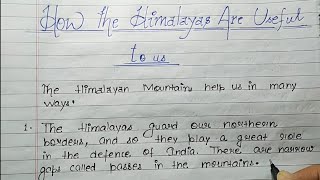 How The Himalayas Are Useful
to us
The Himalayan Mountains help us in many
ways.
1. The Himalayas guard our northern
borders, and so they play a great role
in the defence of India. There are narrow
gaps called passes in the mountains.